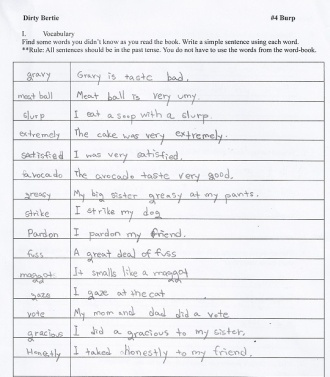 Dirty Bertie #4 Burp
I. Vocabulary
Find some words you didn't know as you read the book. Write a simple sentence using each word.
**Rule: All sentences should be in the past tense. You do not have to use the words from the word-book.
gravy Gravy is taste bad.
meat ball Meat ball is very umy.
slurp I eat a soup with a slurp.
extremely The cake was very extremely.
satisfied I was very satisfied.
avocado The avocado taste very good.
greasy My big sister greasy at my pants.
strike I strike my dog
Pardon I pardon my friend.
fuss A great deal of fuss
maggot It smalls like a maggot
gaze I gaze at the cat
vote My mom and dad did a vote
gracious I did a gracious to my sister.
Honestly I taked Honestly to my friend.